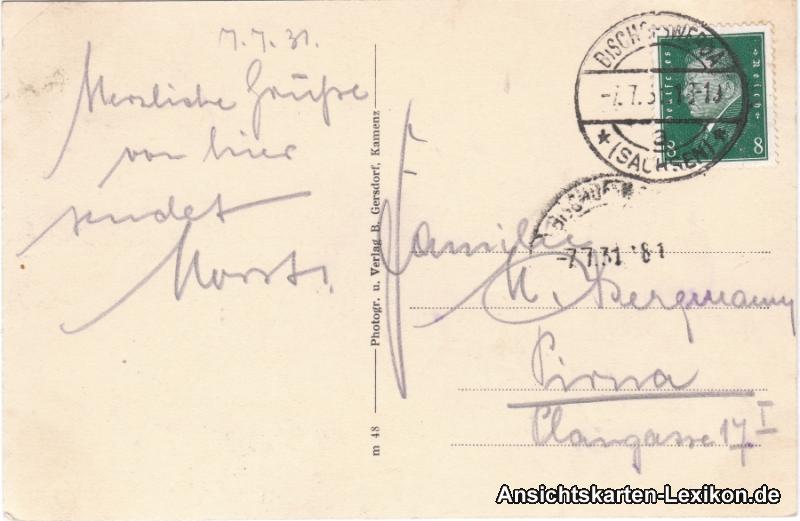 7.7.31.
Herzliche Grüße
von hier
sendet
Horst.
Photogr. u. Verlag B. Gersdorf, Kamenz
m 48
BISCHOFSWERDA
-7.7.31
a
* (SACHSEN) *
Deutsches Reich
8 8
-7.7.31
Familie
Bergmann
Pirna
Plangasse 17 I
Ansichtskarten-Lexikon.de